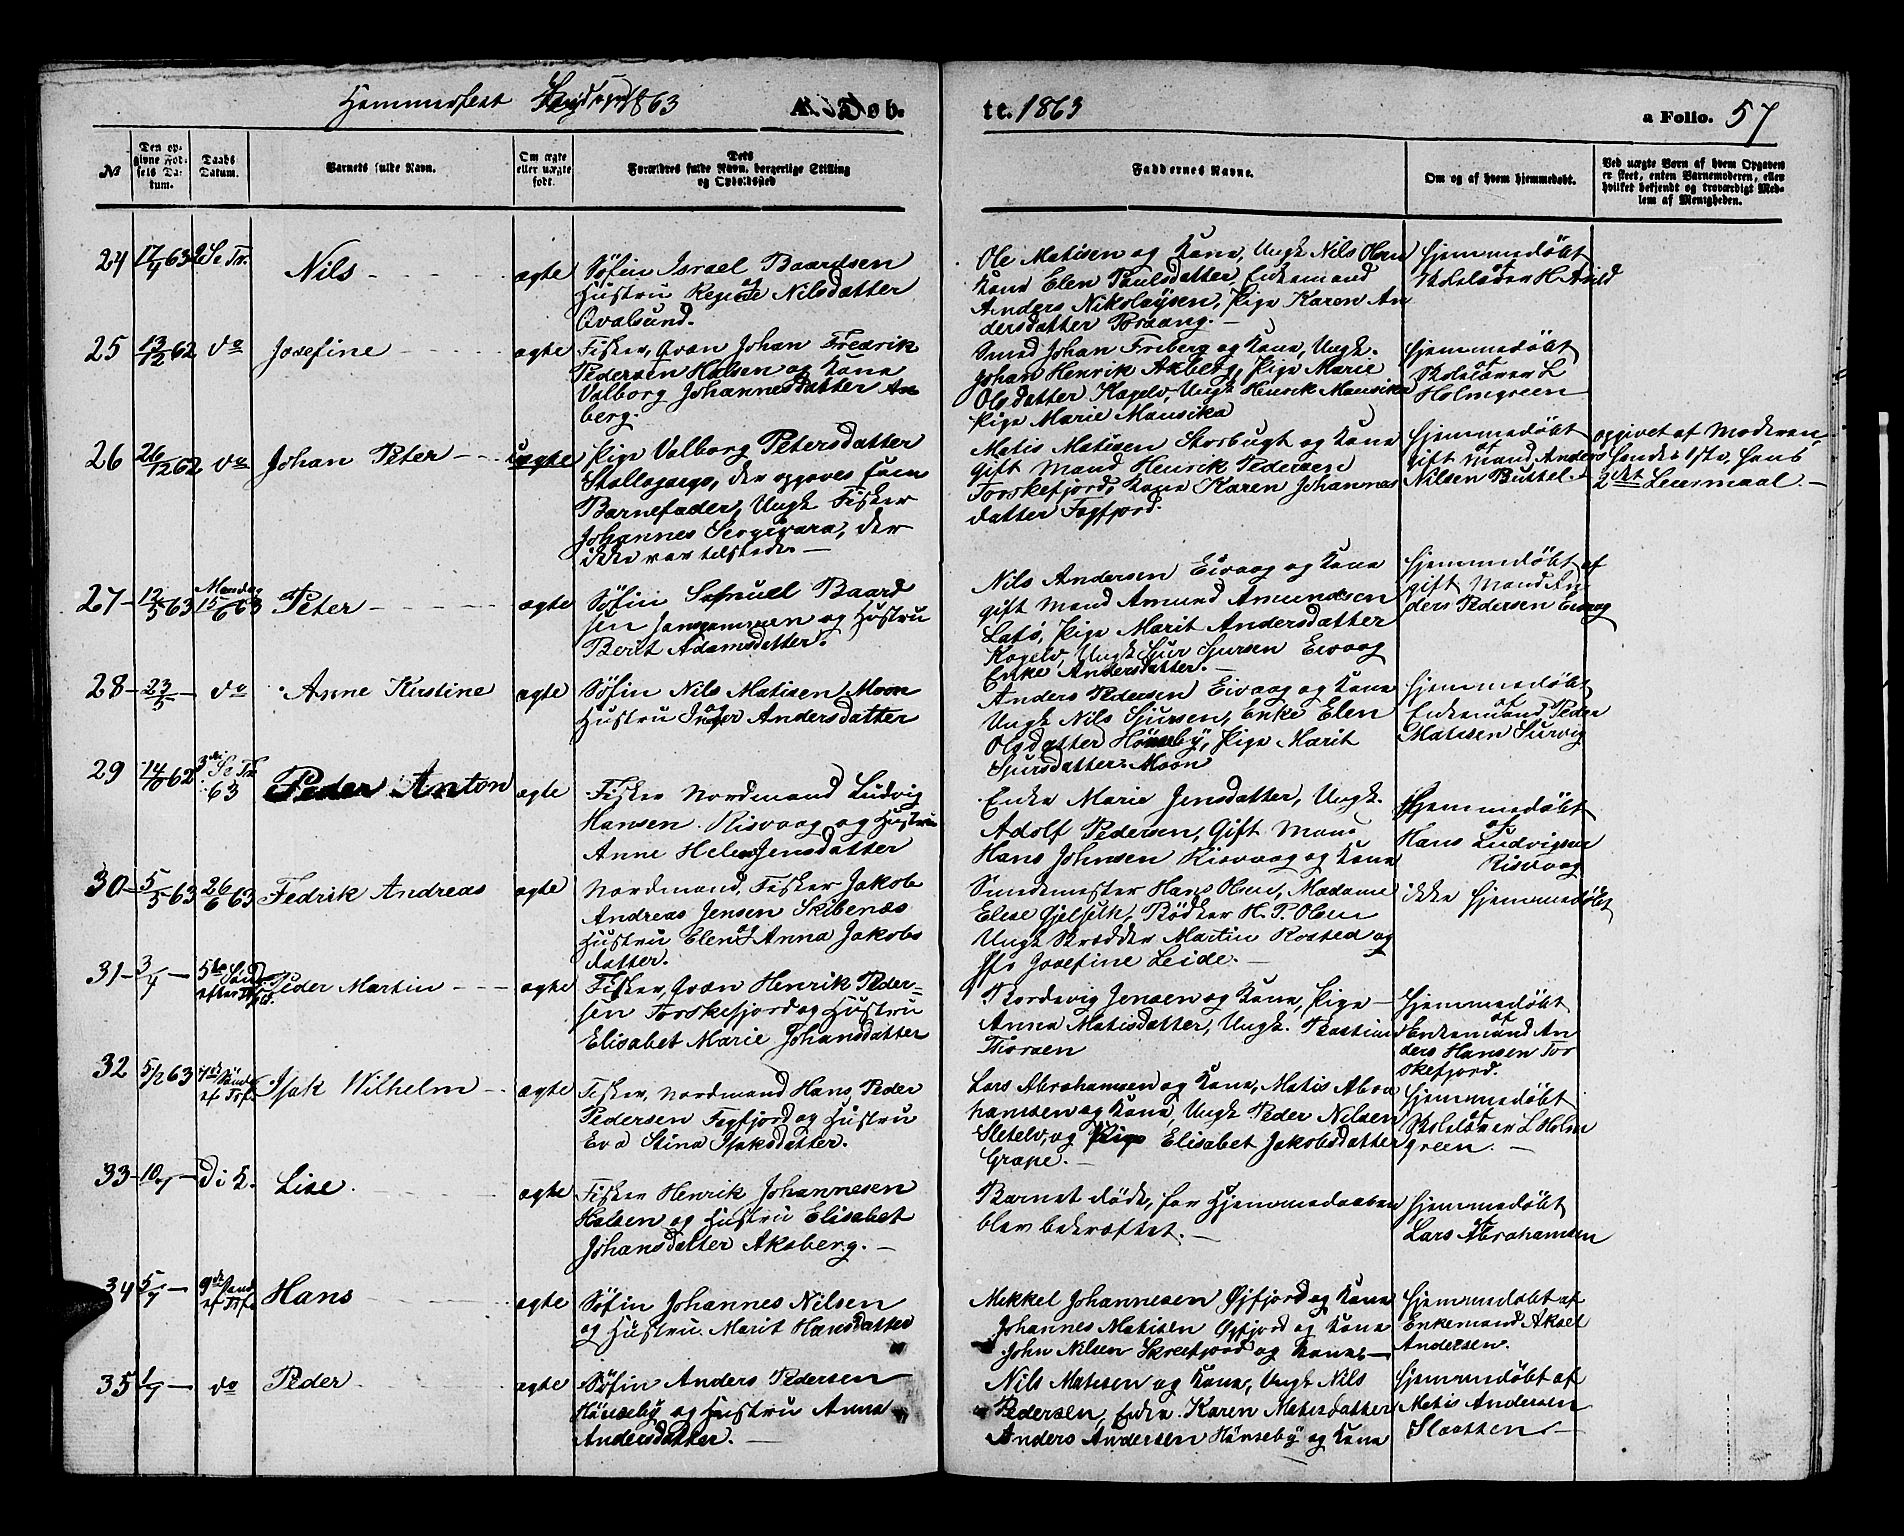 Hammerfest 1863 A. Døb-
te. 1863 a Folio. 57
№
Den op-
givne Fød-
sels Da-
tum.
Daabs
Datum.
Barnets fulde Navn.
Om ægte
eller uægte
født.
Dets
Forældres fulde Navn, borgerlige Stilling
og Opholdssted
Faddernes Navne.
Om og af hvem hjemmedøbt.
Ved uægte Børn af hvem Opgaven
er skeet, enten Barnemoderen, eller
hvilket bekjendt og troværdigt Med-
lem af Menigheden.
24 17/4 63 2 S e Tr. Nils ægte Søfin Israel Baardsen
Hustru og Regine Nilsdatter
Qvalsund.
Ole Matisen og Kone, Ungk Nils Olsen
Kone Elen Paulsdatter, Enkemand
Anders Nikolaysen, Pige Karen An
dersdatter Porsang.
Hjemmedøbt
af
Skolelærer H.
25 13/12 62 do Josefine ægte Fisker, Qvæn Johan Fredrik
Pedersen Halsen og Kone
Valborg Johannesdatter Ak
berg.
Smed Johan Friberg og Kone, Ungk.
Johan Henrik Akberg, Pige Marie
Olsdatter Kagelv, Ungk Henrik Mansika
Pige Marie Mansika
Hjemmedøbt
af
Skolelærer L
Holmgreen
26 26/12 62 do Johan Peter uægte Pige Valborg Petersdatter
Stallogargo, der opgaves som
Barnefader, Ungk Fisker
Johannes, der
ikke var tilstede. —
Matis Matisen Storbugt og Kone
gift Mand Henrik Pedersen
Torskefjord, Kone Karen Johannes
datter Fægfjord.
Hjemmedøbt
af
gift Mand Anders
Nilsen
opgivet af Moderen,
hendes 1ste, hans
2det Leiermaal. —
27 12/5 63 Mandag
15/6 63 Peter ægte Søfin Samuel Baard
sen og Hustru
Berit Adamsdatter.
Nils Andersen Eivaag og Kone
gift Mand Amund Amundsen
Latø, Pige Marit Andersdatter
Kagelv, Ungk Sjur Sjursen Eivaag
Enke Andersdatter. —
Hjemmedøbt af
gift Mand An
ders Pedersen Eivaag
28 23/5 do Anne Kirstine ægte Søfin Nils Matisen Moon
Hustru og Inger Andersdatter
Anders Pedersen Eivaag og Kone
Ungk Nils Sjursen, Enke Elen
Olsdatter Hønseby, Pige Marit
Sjursdatter Moon
Hjemmedøbt
af
Enkemand Peder
Matisen Survig
29 14/10 62 3die S e Tr
63 Peder Anton ægte Fisker Nordmand Ludvig
Hansen Risvaag og Hustru
Anne Helene Jensdatter
Enke Marie Jensdatter, Ungk.
Adolf Pedersen, Gift Mand
Hans Johnsen Risvaag og Kone
Hjemmedøbt
af
Hans Ludvigsen
Risvaag
30 5/5 63 26/6 63 Fedrik Andreas ægte Nordmand, Fisker Jakob
Andreas Jensen Skibenæs
Hustru Elen Anna Jakobs
datter.
Smedemester Hans Olsen, Madame
Elese Gjelseth, Bødker H. P. Olsen
Ungk Skrædder Martin Rosted og
Jfr Josefine Leide. —
ikke hjemmedøbt
31 3/4 5te Sønd
efter Trf. Peder Martin ægte Fisker, Qvæn Henrik Peder-
sen Torskefjord og Hustru
Elisabet Marie Johansdatter
Bordevig Jensen og Kone, Pige
Anna Matisdatter, Ungk. Bastian
Thorsen
Hjemmedøbt
af
Enkemand An
ders Hansen Tor
skefjord.
32 5/2 63 7de Sønd
ef Trf. Isak Wilhelm ægte Fisker, Nordmand Hans Peder
Pedersen Fægfjord og Hustru
Eva Stina Isaksdatter.
Lars Abrahamsen og Kone, Matis Abra
hamsen og Kone, Ungk Peder Nilsen
Sletelv, og Pige Elisabet Jakobsdatter
Grape. —
Hjemmedøbt
af
Skolelærer L Holm
green. —
33 10/7 Di K. Lise. ægte Fisker Henrik Johannesen
Halsen og Hustru Elisabet
Johansdatter Aksberg. —
Barnet døde, før Hjemmedaaben
blev bekræftet. —
Hjemmedøbt
af
Lars Abrahamsen
34 5/7 9de Sønd
ef Trf. Hans ægte Søfin Johannes Nilsen
og Hustru Marit Hansdatter
Mikkel Johannesen Øjfjord og Kone
Johannes Matisen Øjfjord og Kone
John Nilsen Skreifjord og Kone —
Hjemmedøbt af
Enkemand Aksel
Andersen.
35 1/7 do Peder ægte Søfin Anders Pedersen
Hønseby og Hustru Anne
Andersdatter. —
Nils Matisen og Kone, Ungk Nils
Pedersen, Enke Karen Matisdatter
Anders Andersen Hønseby og Kone
Hjemmedøbt af
Matis Andersen
Slaatten —